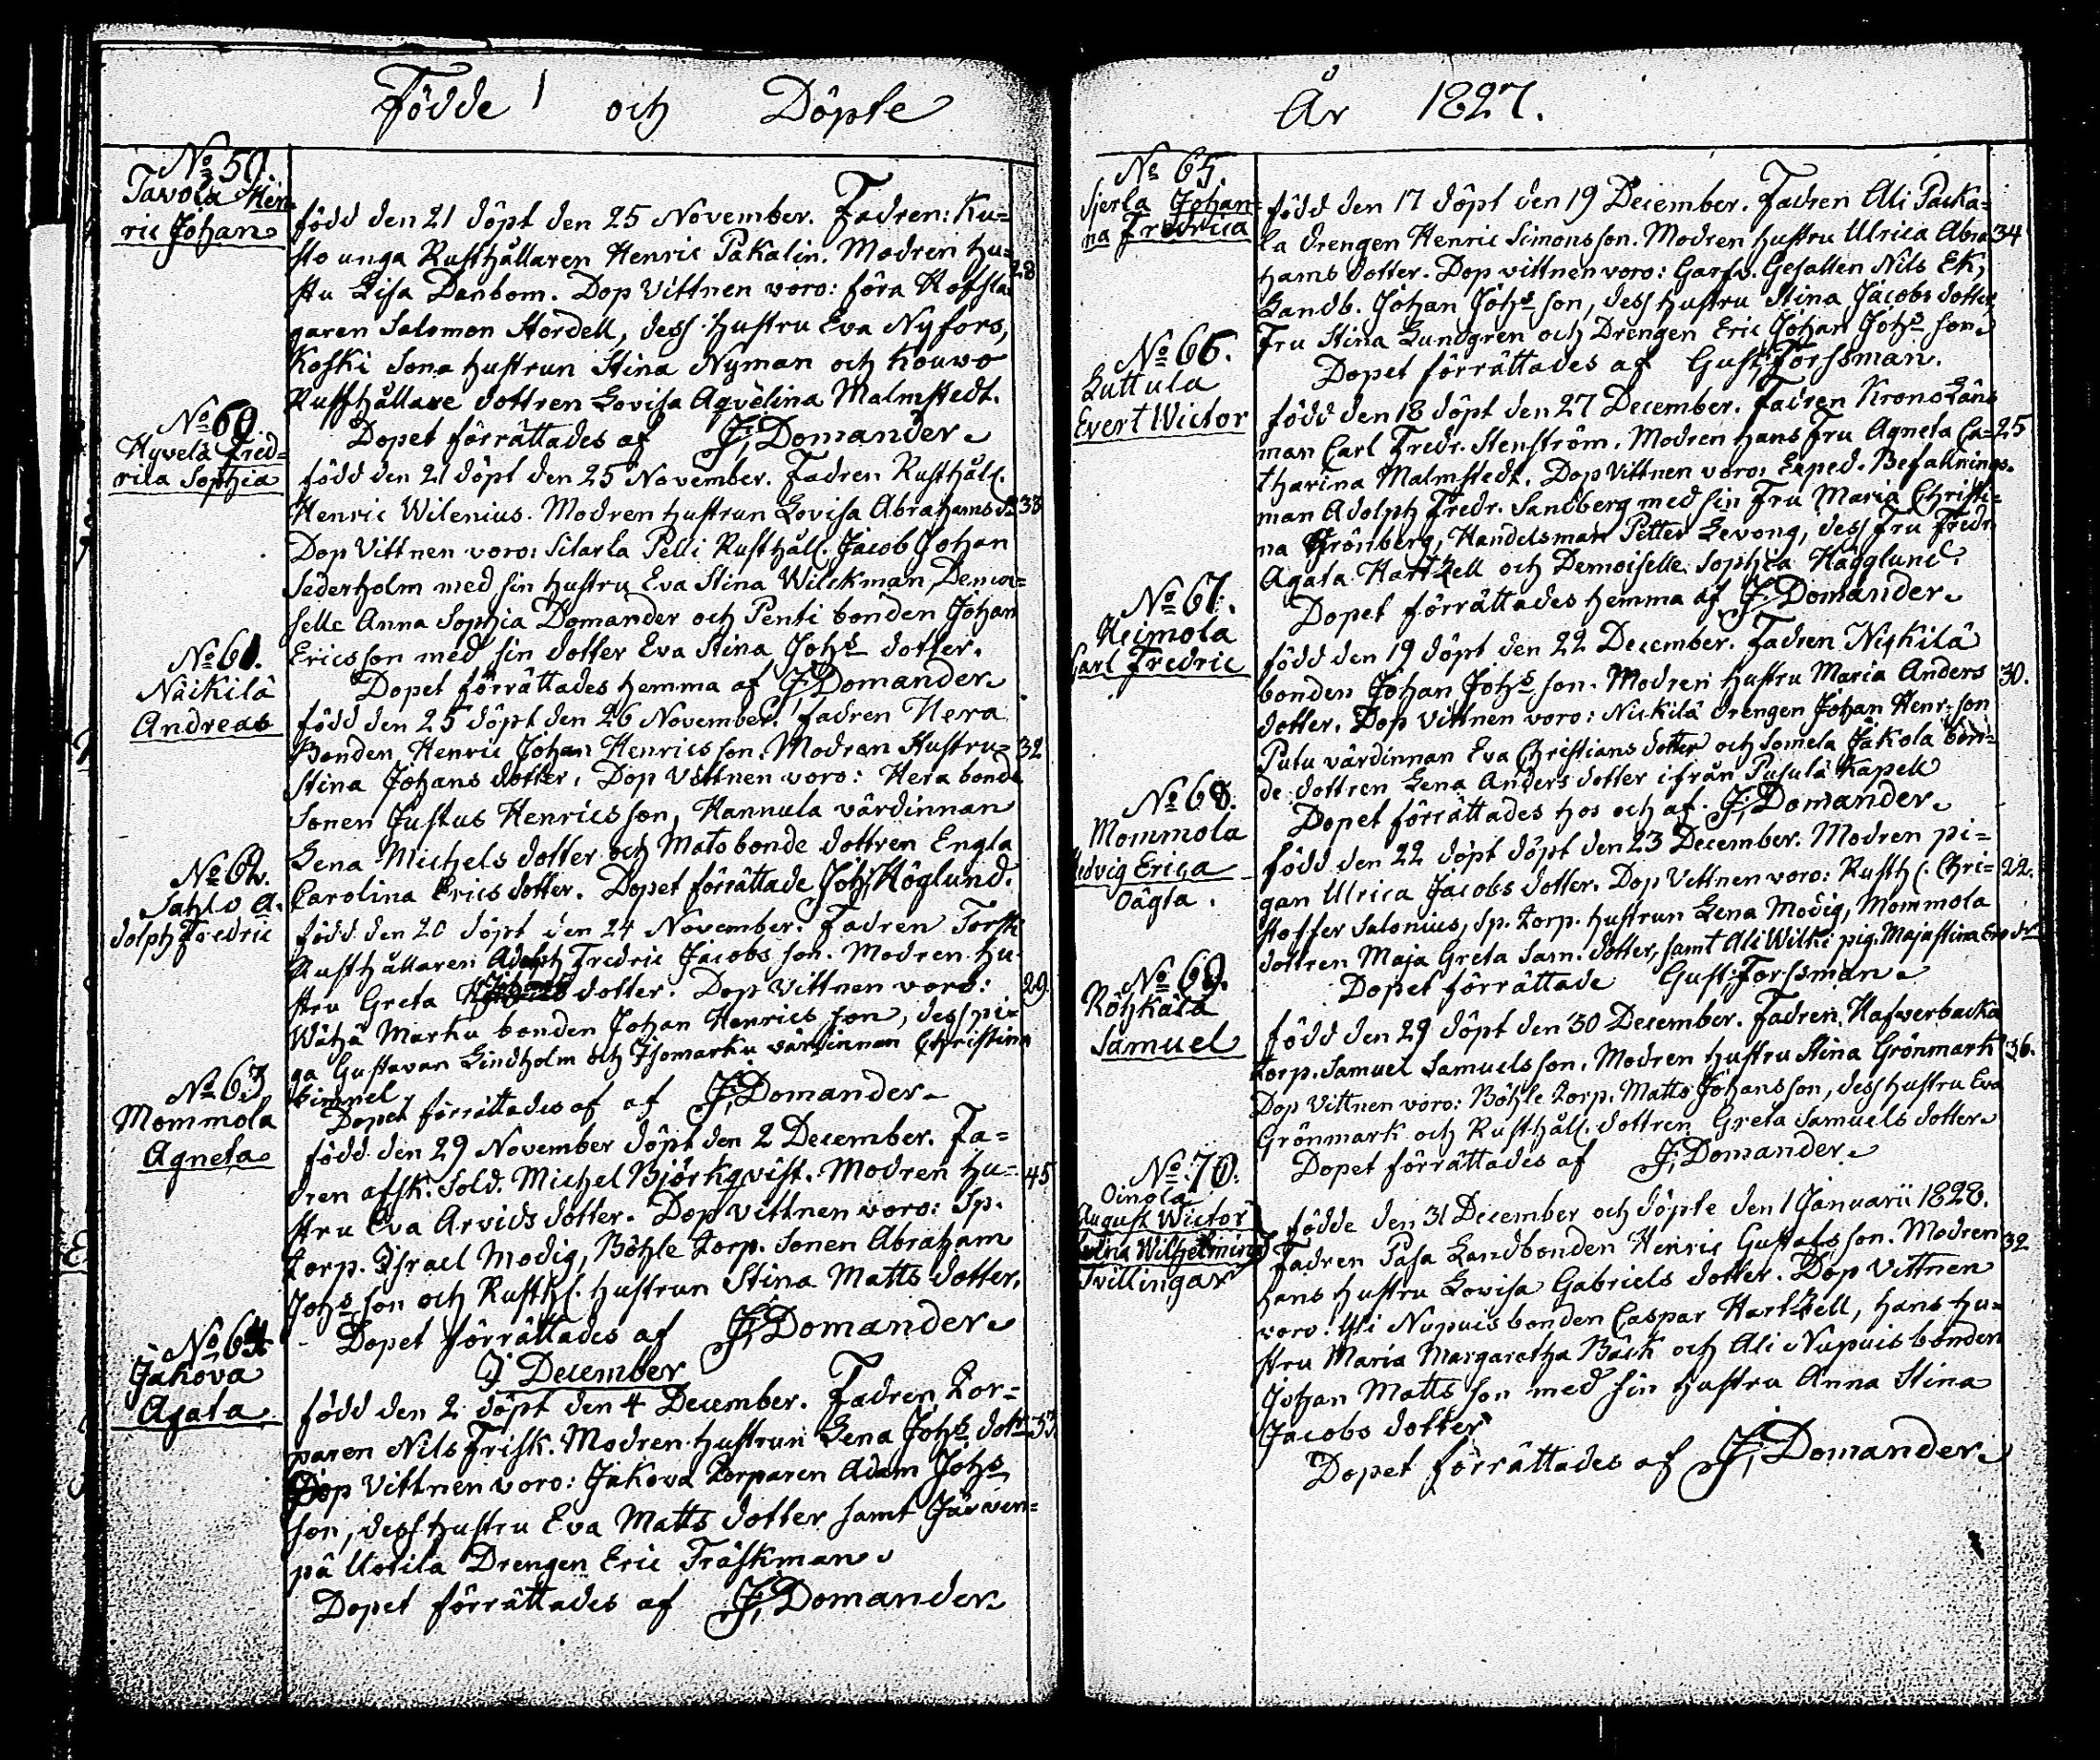 Födde och Döpte
No 59.
Tavola Hen=
ric Johan
född den 21 döpt den 25 November. Fadren: Ku=
sto unga Rusthållaren Henric Pakalin. Modren Hu=
stru Lisa Danbom. Dop Vittnen voro: föra Hofsla=
garen Salomon Stordell, dess Hustru Eva Nyfors,
Koski Sona hustrun Stina Nyman och Kouvo
Rusthållare dottren Lovisa Aqvelina Malmstedt.
Dopet förrättades af J. Domander
28
No 60.
Hyvelä Fred=
rica Sophia
född den 21 döpt den 25 November. Fadren Rusthåll.
Henric Wilenius. Modren hustrun Lovisa Abrahams d.
Dop Vittnen voro: Silarla Pelli Rusthåll. Jacob Johan
Sederholm med sin hustru Eva Stina Wilckman, Demoi=
selle Anna Sophia Domander och Penti bonden Johan
Ericsson med sin dotter Eva Stina Johs dotter.
Dopet förrättades hemma af J. Domander
38
No 61.
Näikilä
Andreas
född den 25 döpt den 26 November. Fadren Hera
Bonden Henric Johan Henricsson. Modren Hustru
Stina Johans dotter. Dop Vittnen voro: Hera bonde
Sonen Justus Henricsson, Hannula värdinnan
Lena Michels dotter och Mato bonde dottren Engla
Carolina Erics dotter. Dopet förrättade Joh. Höglund.
32
No 62.
Sahlo A.
dolph Fredric
född den 20 döpt den 24 November. Fadren Torsk
Rusthållaren Adolph Fredric Jacobs son. Modren Hu=
stru Greta dotter. Dop Vittnen voro:
Wähä Marku bonden Johan Henrics son, dess pi=
ga Gustavan Lindholm och Isomarku värdinnan Christina
Himmel.
Dopet förrättades af af J. Domander
29.
No 63
Mommola
Agneta
född den 29 November döpt den 2 December. Fa=
dren afsk. Sold. Michel Björkqvist. Modren Hu=
stru Eva Arvids dotter. Dop Vittnen voro: Sp.
Torp. Israel Modig, Böhle Torp. Sonen Abraham
Johs son och Rusth. hustrun Stina Matts dotter.
Dopet förrättades af J. Domander
45
I December
No 64
Jakova
Agata
född den 2 döpt den 4 December. Fadren Tor=
paren Nils Frisk. Modren hustrun Lena Johs dotr
Dop Vittnen voro: Jakova Torparen Adam Johs
son, dess Hustru Eva Matts dotter samt Järven=
pä Uotila Drengen Eric Träskman.
Dopet förrättades af J. Domander
33
År 1827.
No 65.
Sjerla Johan=
na Fredrica
född den 17 döpt den 19 December. Fadren Ali Packa=
la drengen Henric Simonsson. Modren hustru Ulrica Abra
hams dotter. Dop vittnen voro: Garfv. Gesällen Nils Ek,
Landb. Johan Johs son, dess hustru Stina Jacobs dotter,
Fru Stina Lundgren och Drengen Eric Johan Johs son.
Dopet förrättades af Gust. Forssman.
34
No 66.
Luttula
Evert Wictor
född den 18 döpt den 27 December. Fadren Krono Läns
man Carl Fredr. Stenström. Modren hans Fru Agneta Ca=
tharina Malmstedt. Dop Vittnen voro: Exped. Befallnings.
man Adolph Fredr. Sandberg med sin Fru Maria Christi=
na Grönberg, Handelsman Petter Levong, dess Fru Fredr.
Agata Hartzell och Demoiselle Sophia Hägglund.
Dopet förrättades hemma af J. Domander
25
No 67.
Heimola
Carl Fredric
född den 19 döpt den 22 December. Fadren Niskilä
bonden Johan Johs son. Modren hustru Maria Anders
dotter. Dop Vittnen voro: Niskilä drengen Johan Henr. son
Putu värdinnan Eva Christians dotter och Somela Jakola bon=
de dottren Lena Anders dotter ifrån Pusula Kapell
Dopet förrättades hos och af J. Domander
30.
No 68.
Mommola
Hedvig Erica
Oägta.
född den 22 döpt döpt den 23 December. Modren pi=
gan Ulrica Jacobs dotter. Dop Vittnen voro: Rusth. Chri=
stoffer Salonius, Sp. Torp. hustrun Lena Modig, Mommola
dottren Maja Greta Sam. dotter, samt Ali Wilki pig. Maja Stina Ers dr
Dopet förrättade Gust. Forssman
22.
No 69.
Röhkälä
Samuel
född den 29 döpt den 30 December. Fadren Hafverbacka
Torp. Samuel Samuelsson. Modren hustru Stina Grönmark
Dop Vittnen voro: Böhle Torp. Matts Johansson, dess hustru Eva
Grönmark och Rusthåll. dottren Greta Samuels dotter
Dopet förrättades af J. Domander
36.
No 70.
Oinola
August Wictor
Wilhelmina
Tvillingar
födde den 31 December och döpte den 1 Januarii 1828.
Fadren Pasa Landbonden Henric Gustafsson. Modren
hans hustru Lovisa Gabriels dotter. Dop Vittnen
voro: Yli Nupuis bonden Caspar Hartzell, hans hu=
stru Maria Margaretha Bäck och Ali Nupuis bonden
Johan Matts son med sin hustru Anna Stina
Jacobs dotter
Dopet förrättades af J. Domander
32